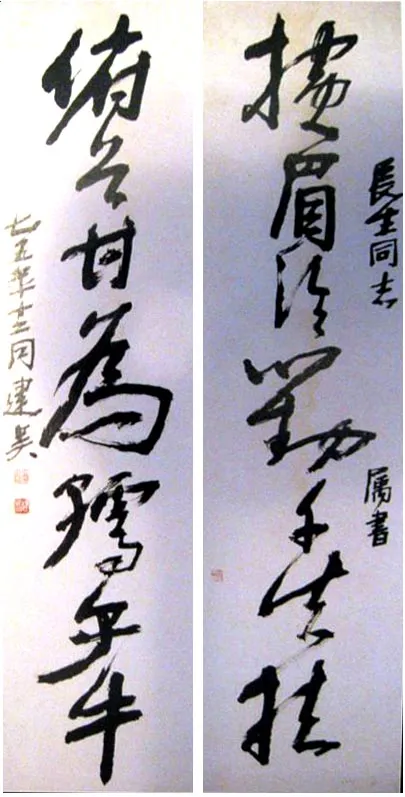 長生同志
属書
横眉冷對千夫指
俯首甘為孺子牛
七五年十二月建吴